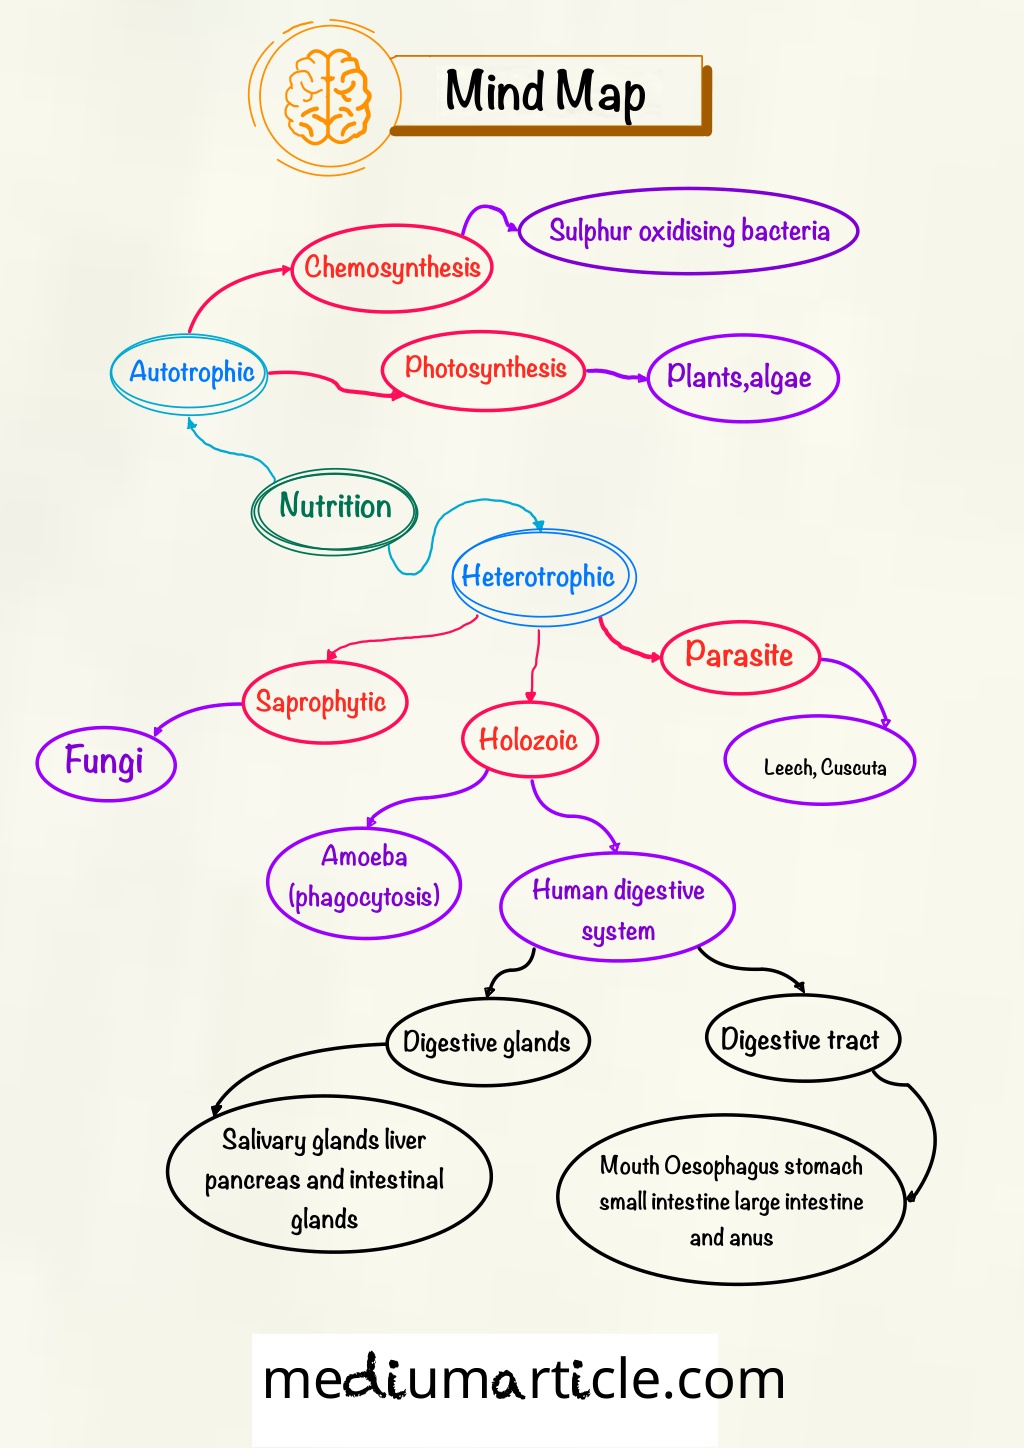 Mind Map
Sulphur oxidising bacteria
Chemosynthesis
Autotrophic
Photosynthesis
Plants,algae
Nutrition
Heterotrophic
Parasite
Saprophytic
Holozoic
Fungi
Leech, Cuscuta
Amoeba
(phagocytosis)
Human digestive
system
Digestive glands
Digestive tract
Salivary glands liver
pancreas and intestinal
glands
Mouth Oesophagus stomach
small intestine large intestine
and anus
mediumarticle.com